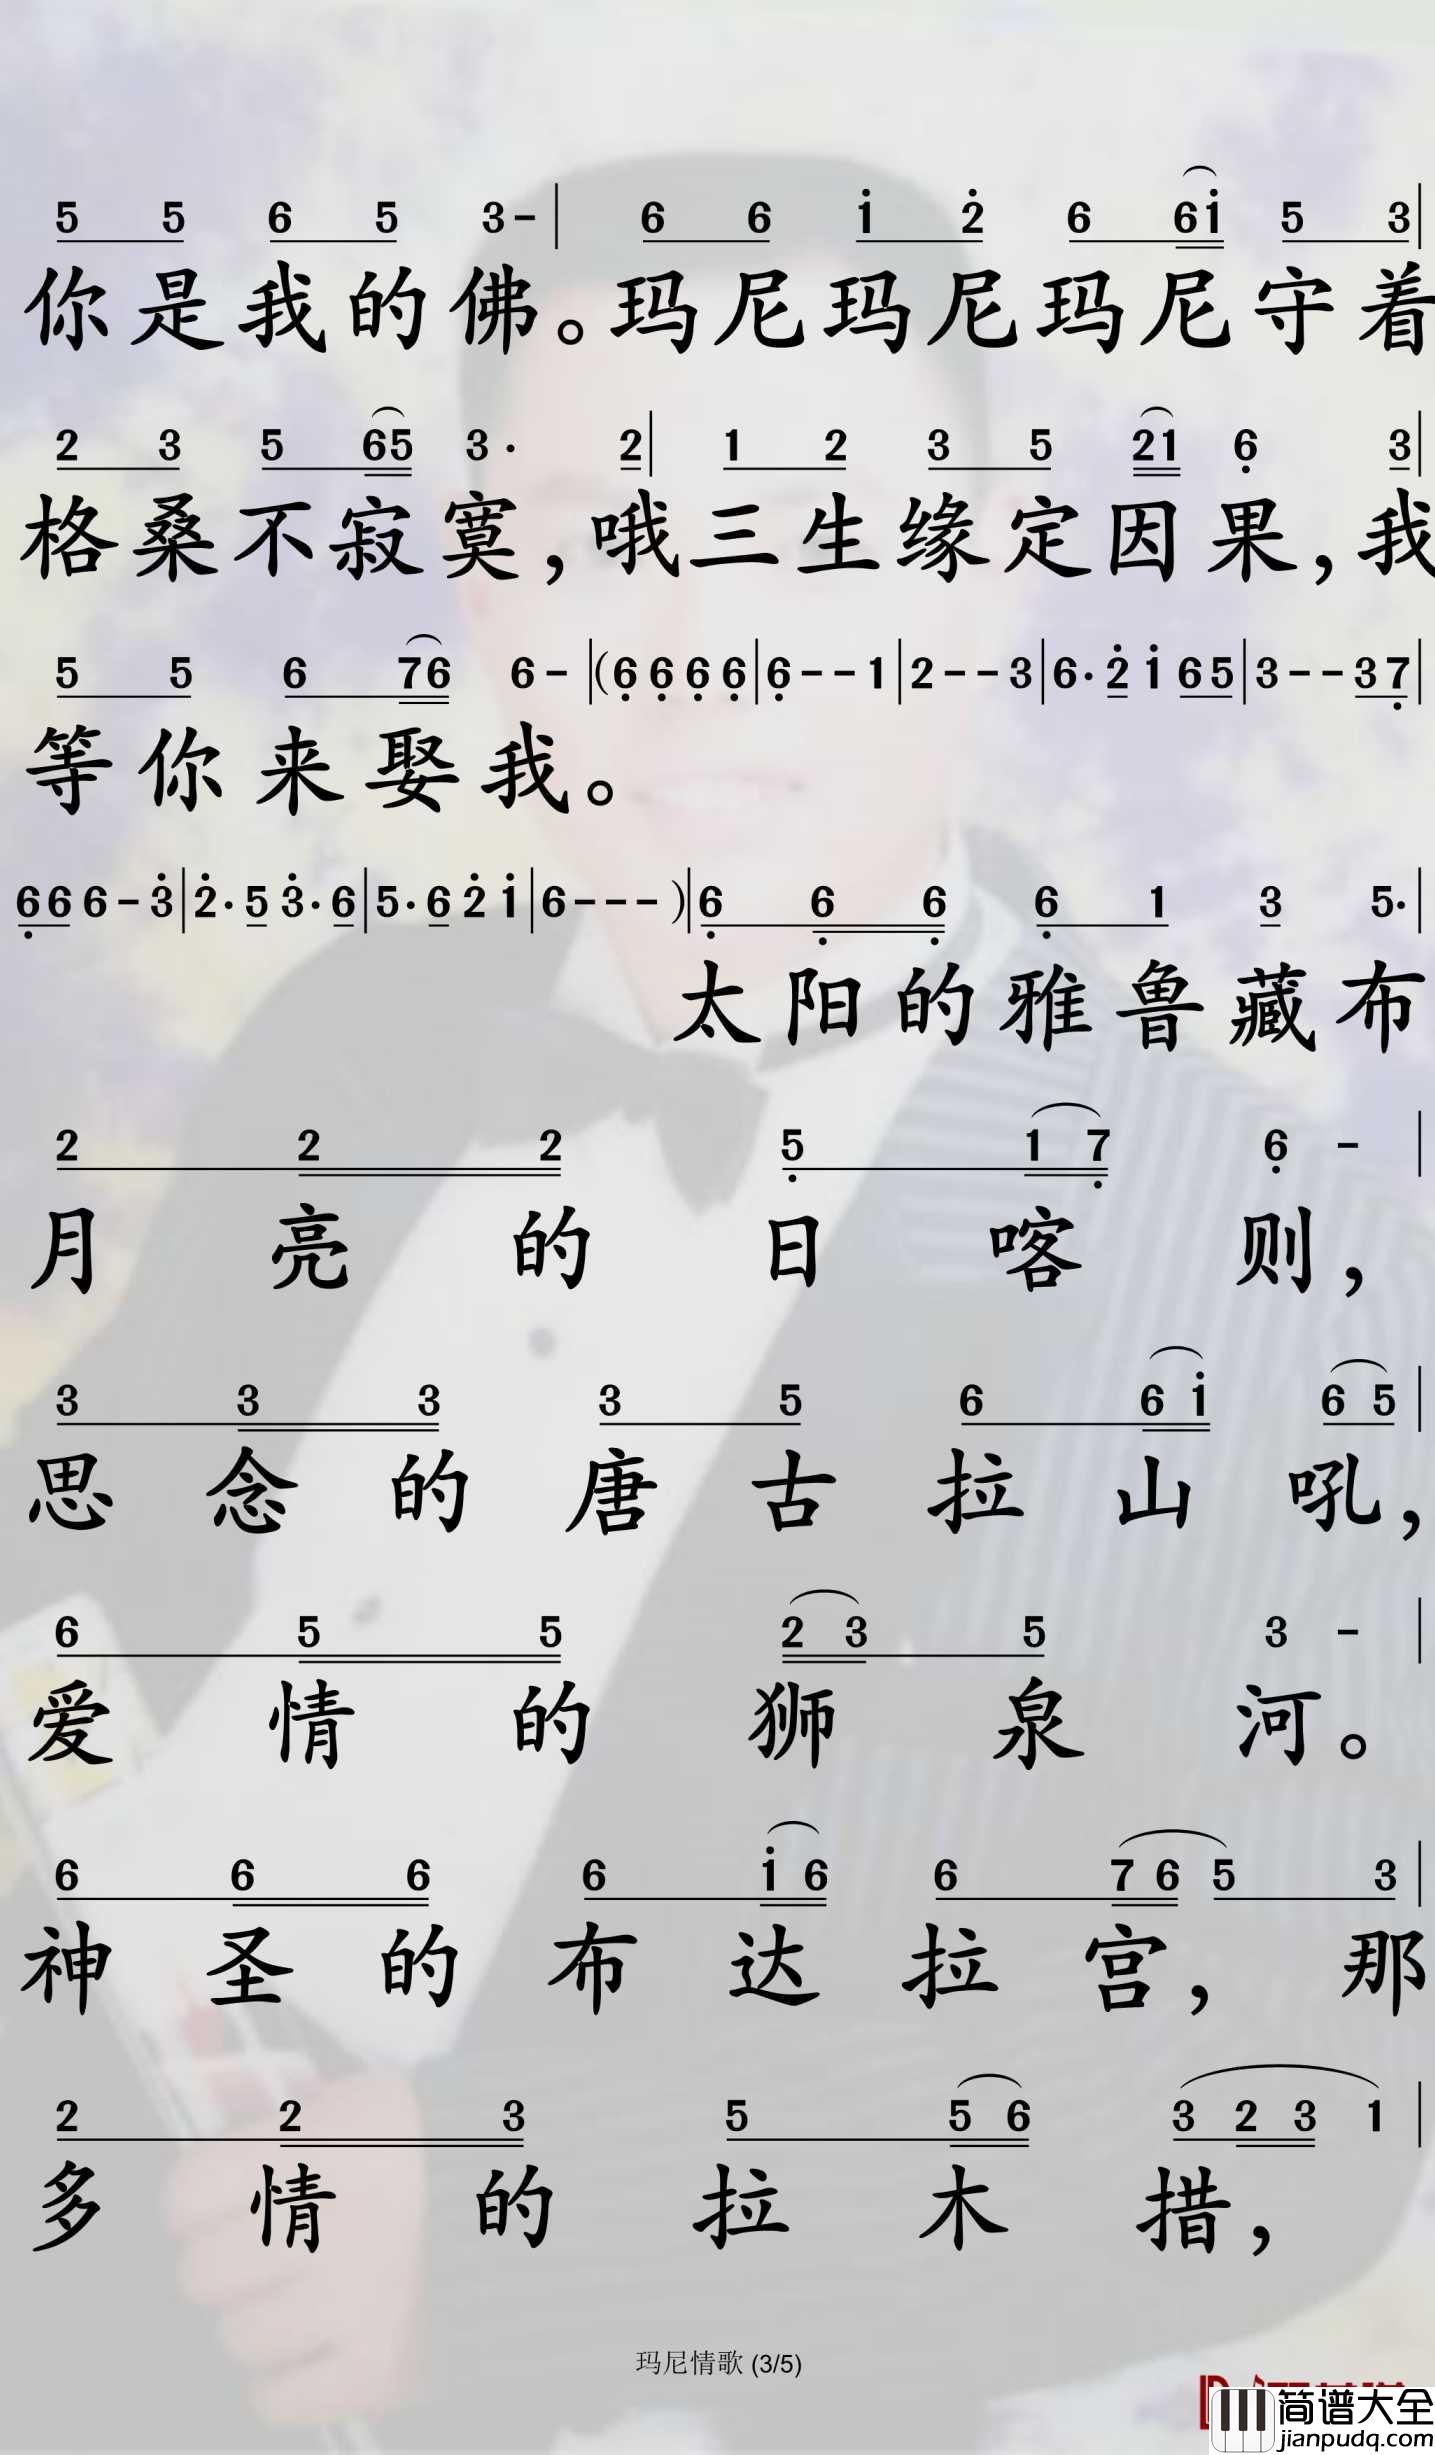 5 5 6 5 3- | 6 6 1̇ 2̇ 6 61̇ 5 3 |
你是我的佛。玛尼玛尼玛尼守着
2 3 5 65 3· 2 | 1 2 3 5 21 6̣ 3 |
格桑不寂寞,哦三生缘定因果,我
5 5 6 76 6- | (6̣ 6̣ 6̣ 6̣ | 6̣--1 | 2--3 | 6·2̇ 1̇ 65 | 3--37̣ |
等你来娶我。
6̣6 6-3̇ | 2̇·5 3̇·6 | 5·6 2̇ 1̇ | 6---) | 6̣ 6̣ 6̣ 6̣ 1 3 5· |
太阳的雅鲁藏布
2 2 2 5̣ 1 7̣ 6̣ - |
月亮的日喀则,
3 3 3 3 5 6 6 1̇ 6 5 |
思念的唐古拉山吼,
6 5 5 2 3 5 3 - |
爱情的狮泉河。
6 6 6 6 1̇ 6 6 7 6 5 3 |
神圣的布达拉宫,那
2 2 3 5 5 6 3 2 3 1 |
多情的拉木措,
玛尼情歌 (3/5)
简谱大全
jianpudq.com